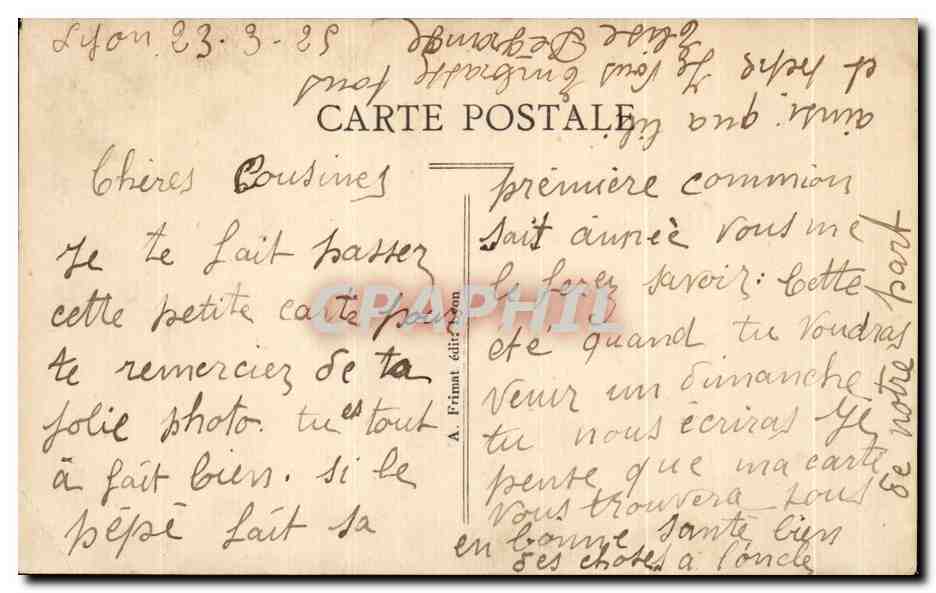 Lyon 23-3-25
CARTE POSTALE
Chères Cousines
Je te fait passer
cette petite carte pour
te remerciez de ta
jolie photo. tu es tout
à fait bien. si le
pépé fait sa
prémière commion
sait année vous me
le ferez savoir: Cette
été quand tu voudras
venir un dimanche
tu nous écriras Je
pense que ma carte
vous trouvera tous
en bonne santé bien
des choses a l'oncle
de notre part
ainsi qua
et Je vous Embrasse tous
Elise Degrange
A. Frimat édit. Lyon
CPAPHIL